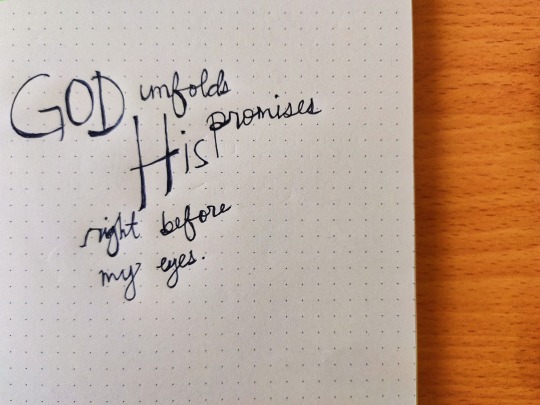 GOD unfolds
His promises
right before
my eyes.